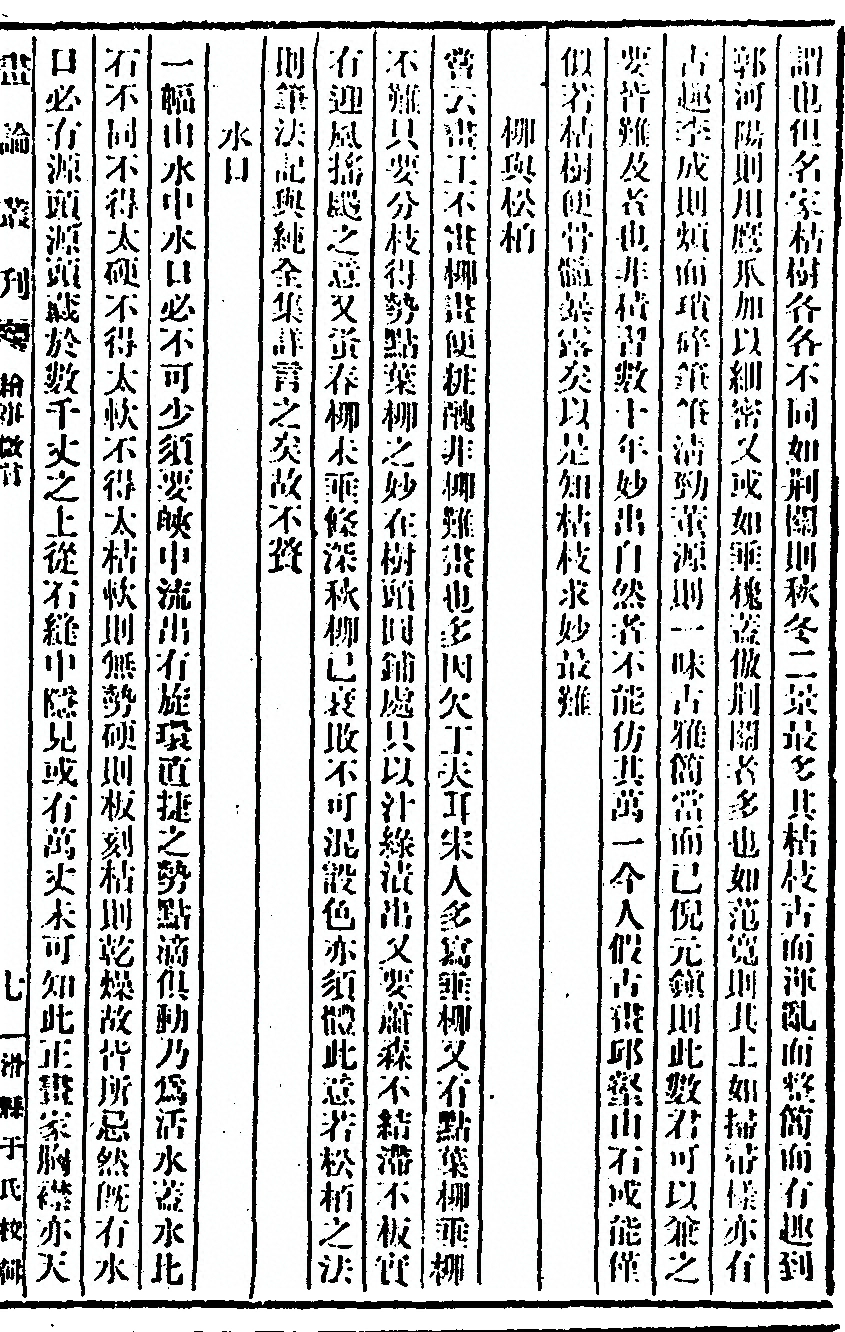 謂也但名家枯樹各各不同如荆關則秋冬二景最多其枯枝古而渾亂而整簡而有趣到
郭河陽則用鷹爪加以細密又或如垂槐蓋倣荆關者多也如范寬則其上如掃帚樣亦有
古趣李成則煩而瑣碎筆筆清勁董源則一味古雅簡當而已倪元鎮則此數君可以兼之
要皆難及者也非積習數十年妙出自然者不能仿其萬一今人假古畫邱壑山石或能僅
似若枯樹便骨髓暴露矣以是知枯枝求妙最難
柳與松柏
嘗云畫工不畫柳畫便挑醜非柳難畫也多因欠工夫耳宋人多寫垂柳又有點葉柳垂柳
不難只要分枝得勢點葉柳之妙在樹頭圓鋪處只以汁綠漬出又要蕭森不結滯不板實
有迎風搖颺之意又當春柳未垂條深秋柳已衰敗不可混設色亦須體此意若松柏之法
則筆法記與純全集詳言之矣故不贅
水口
一幅山水中水口必不可少須要峽中流出有旋環直捷之勢點滴俱動乃爲活水蓋水比
石不同不得太硬不得太軟不得太枯軟則無勢硬則板刻枯則乾燥故皆所忌然既有水
口必有源頭源頭藏於數千丈之上從石縫中隱見或有萬丈未可知此正畫家胸襟亦天
畫論叢刊 繪事微言 七 滑縣于氏校印